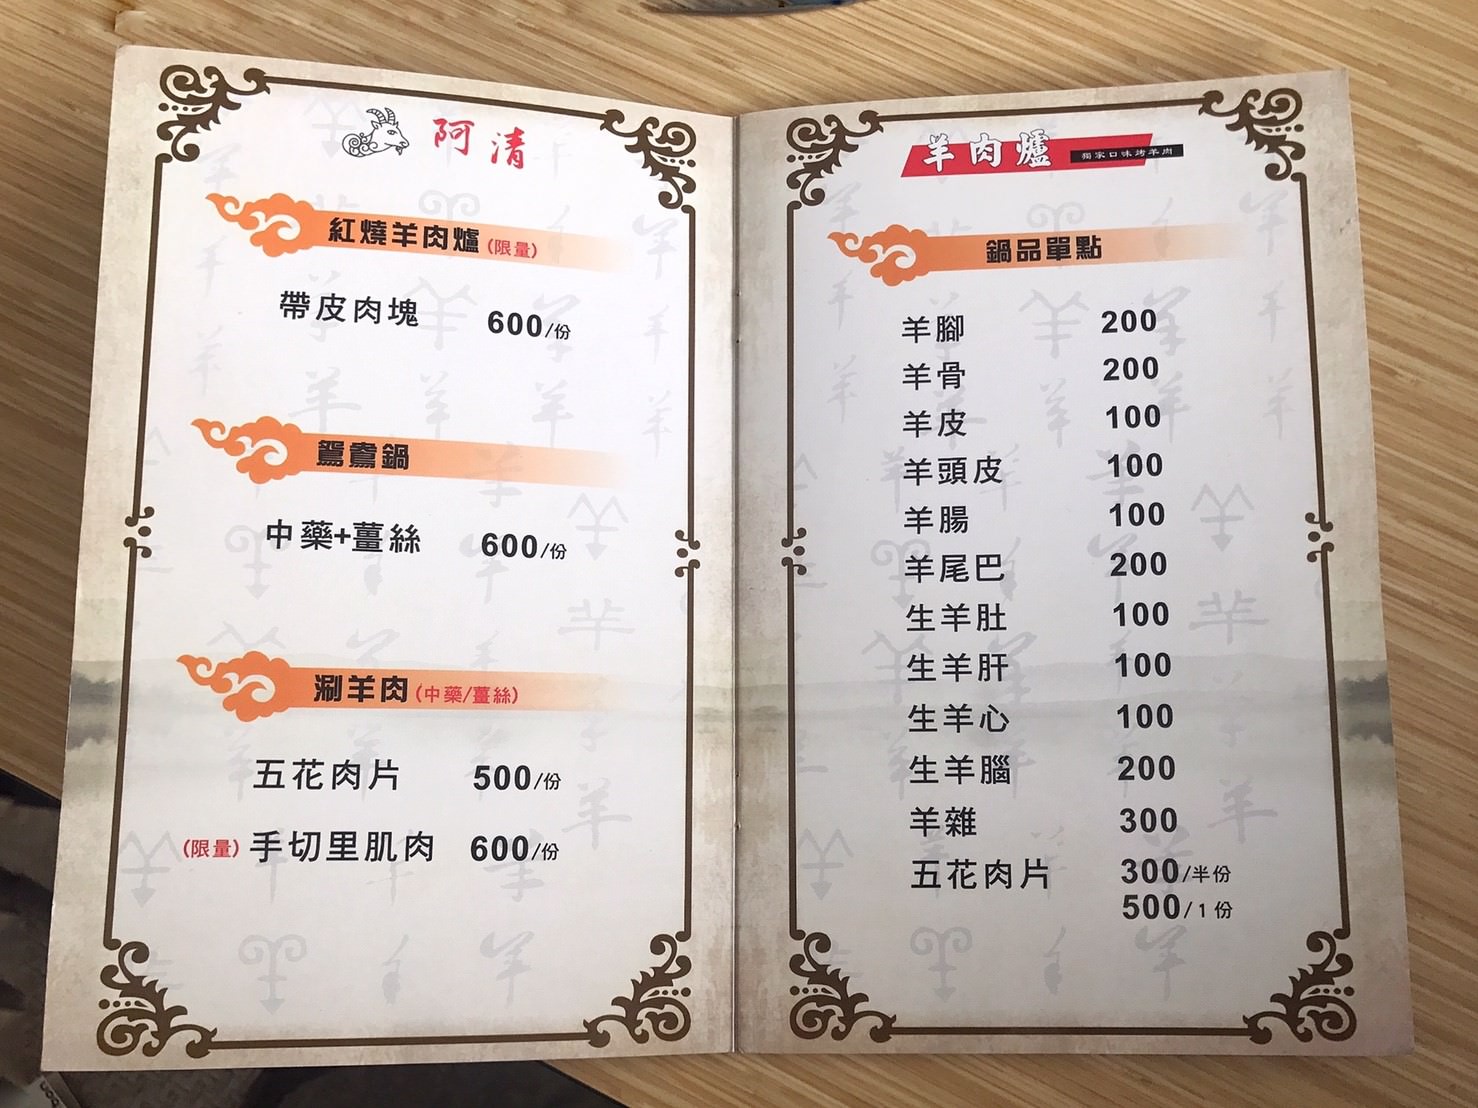 阿清
紅燒羊肉爐(限量)
帶皮肉塊 600/份
鴛鴦鍋
中藥+薑絲 600/份
涮羊肉(中藥/薑絲)
五花肉片 500/份
(限量)手切里肌肉 600/份
羊肉爐 獨家口味烤羊肉
鍋品單點
羊腳 200
羊骨 200
羊皮 100
羊頭皮 100
羊腸 100
羊尾巴 200
生羊肚 100
生羊肝 100
生羊心 100
生羊腦 200
羊雜 300
五花肉片 300/半份
500/1份